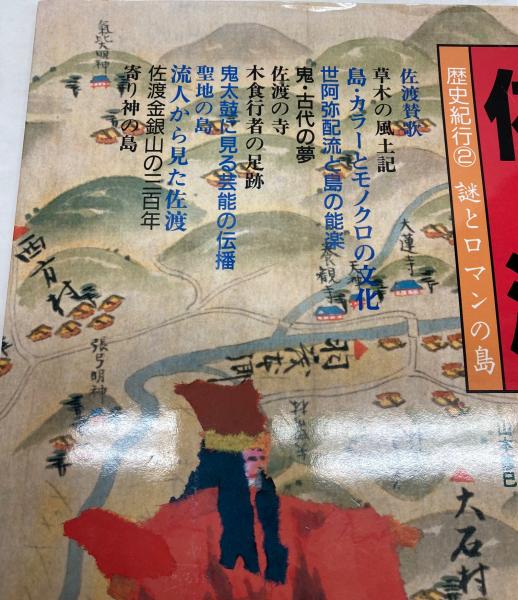 佐渡
歴史紀行② 謎とロマンの島
佐渡賛歌
草木の風土記
島・カラーとモノクロの文化
世阿弥配流と島の能楽
鬼・古代の夢
佐渡の寺
木食行者の足跡
鬼太鼓に見る芸能の伝播
聖地の島
流人から見た佐渡
佐渡金銀山の三百年
寄り神の島
大蓮寺
西方村
張弓明神
羽茂本郷
大石村